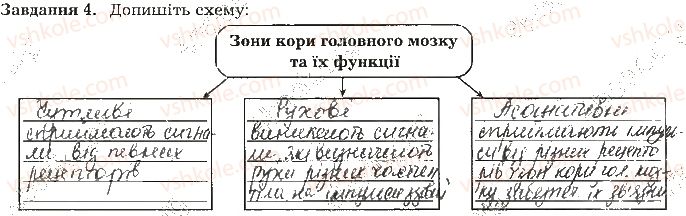 Завдання 4. Допишіть схему:
Зони кори головного мозку
та їх функції
Чутливі
сприймають сигна-
ли від певних
рецепторів
Рухові
виникають сигна-
ли, які визначають
рухи різних частин
тіла на імпульси
Асоціативні
сприймають імпуль
си від різних рецепто
рів зон кори гол. моз-
ку їх зв'язки